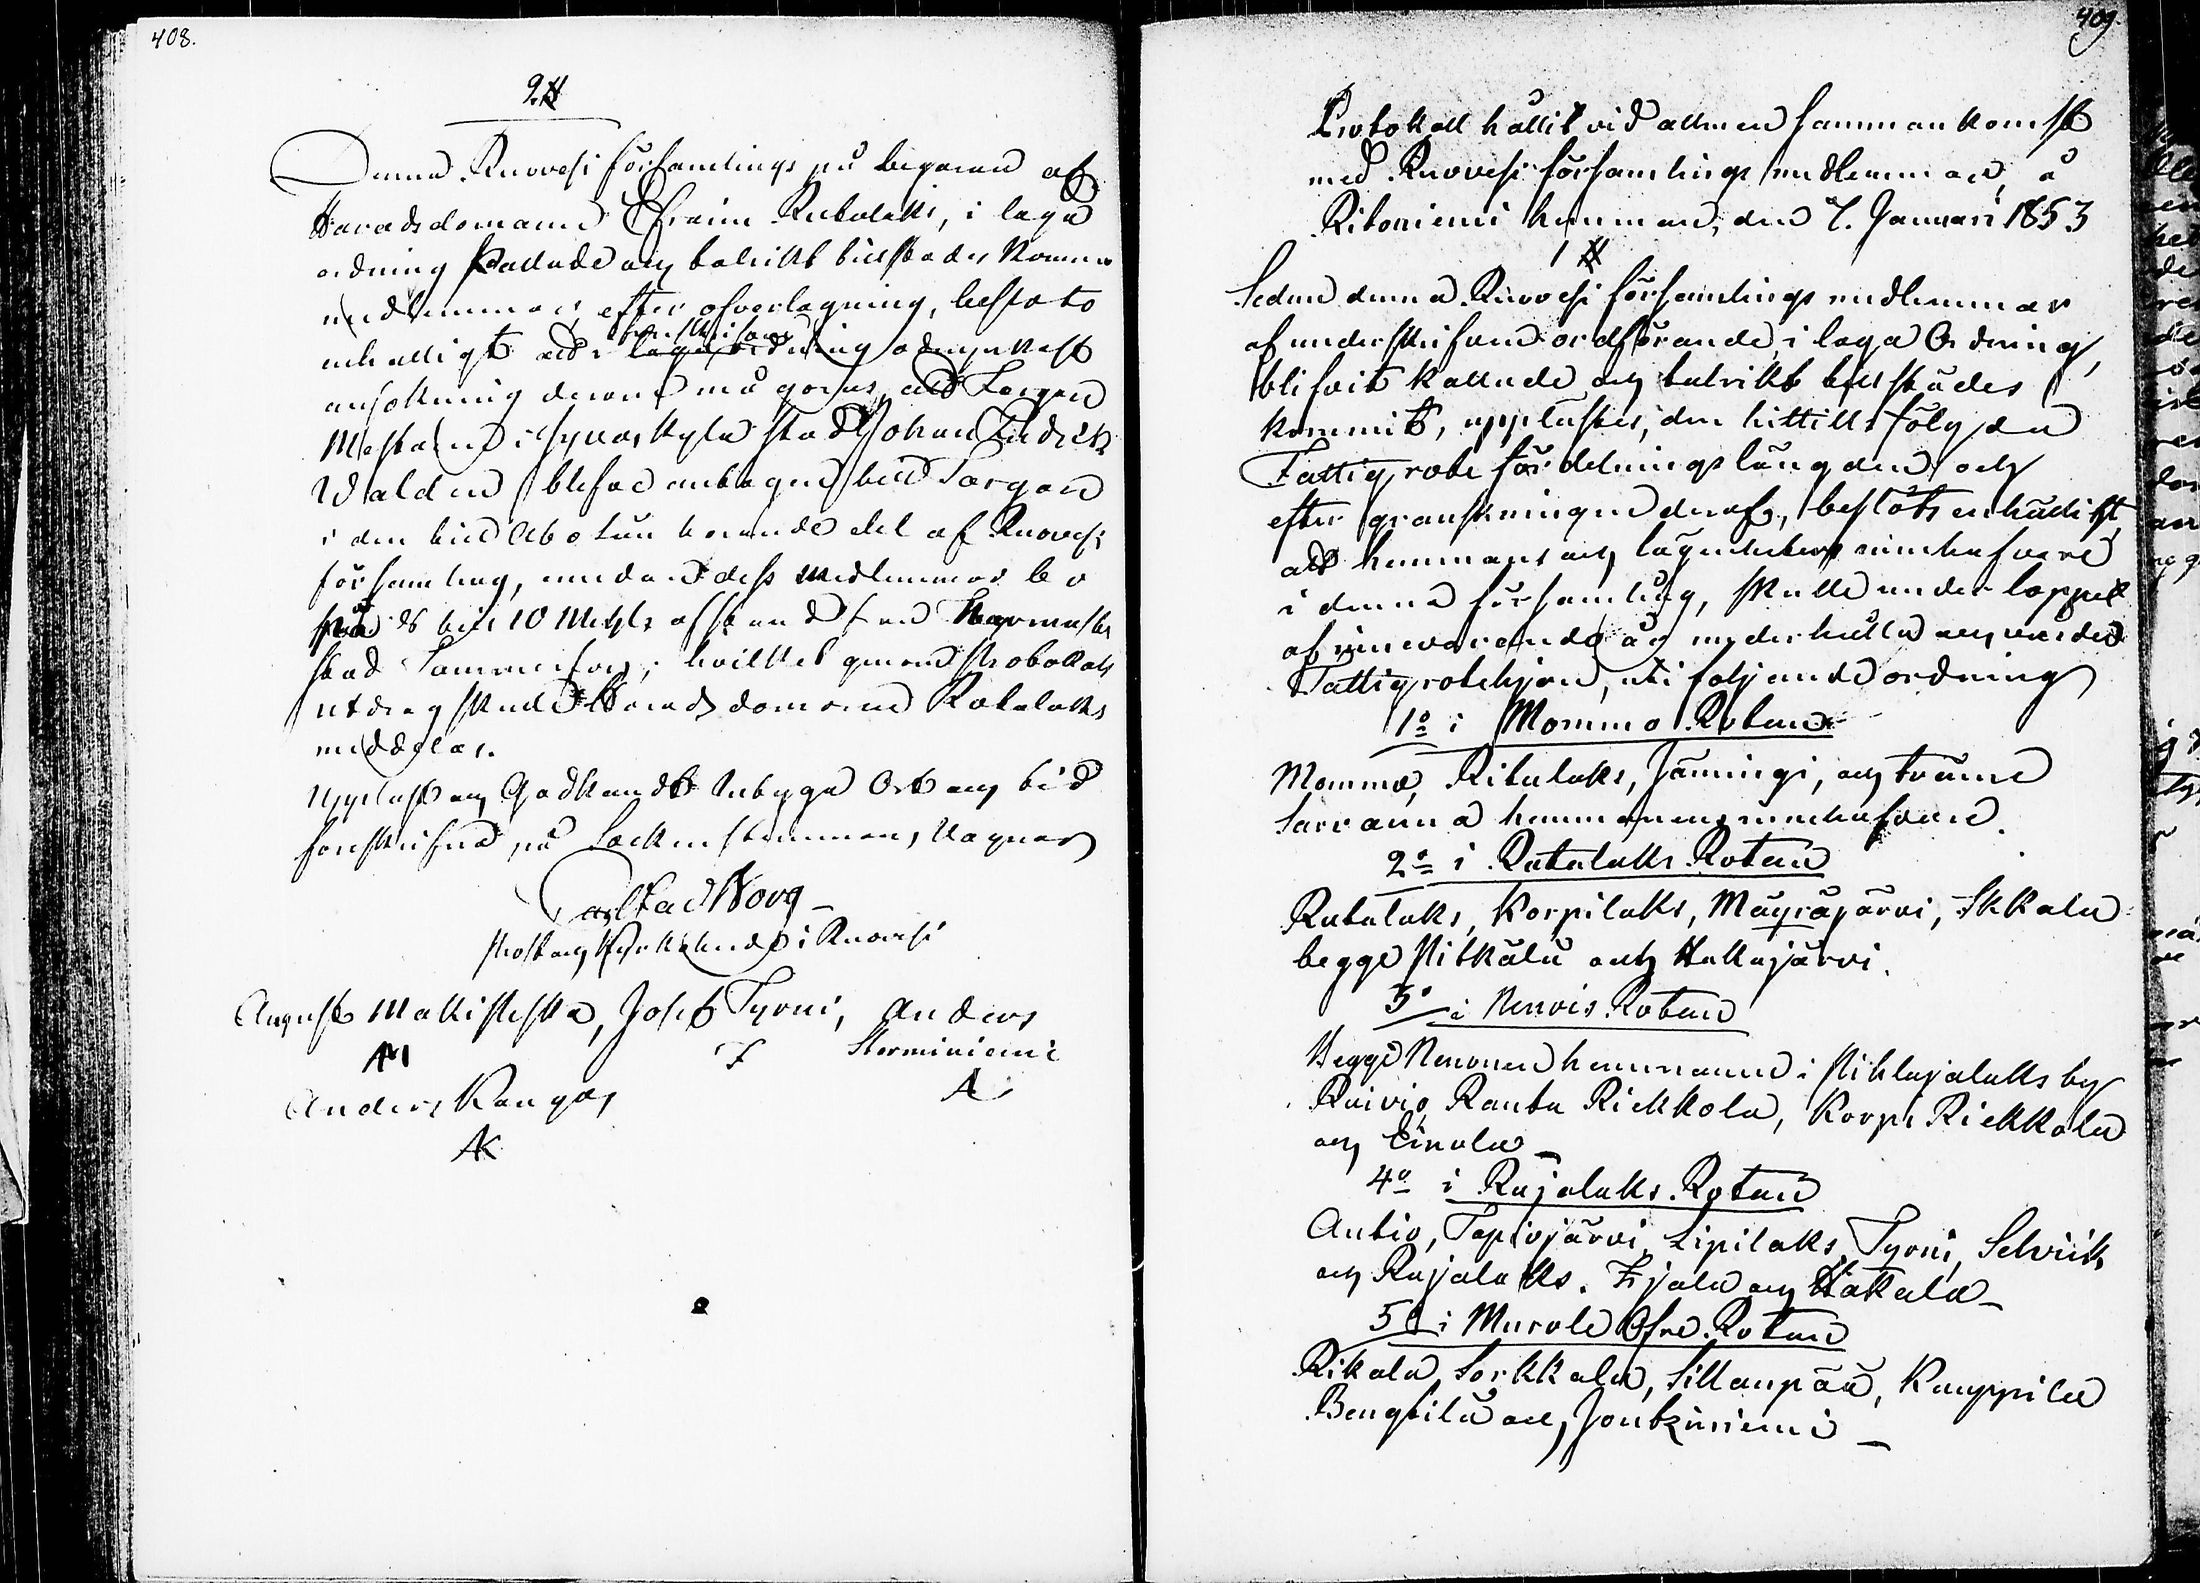 408.
2 §
Denna Ruovesi församlings på begäran af
Häradsdomaren Efraim Rutalaks, i laga
ordning kallade och talrikt tillstädes komne
medlemmar, efter öfverläggning, beslöto
enhälligt att i laga ordning ödmjukast
föreskrifven
ansökning derom må göras, att Färgare
Mestaren i Jyväskylä stad Johan Fredrik
Walden blefve antagen till Färgare
i den till Åbo Län hörande del af Ruovesi
församling, emedan dess Medlemmar bo
ända till 10 Mihls afstånd från Närmaste
stad Tammerfors; hvilket genom Protokolls
utdrag skulle Häradsdomaren Rutalaks
meddelas.
Uppläst och Godkändt Utbyga Ort och tid
förskrifne på Sockenstämmans Vägnar
Carl Fad Borg
Prost och Kyrkoherde i Ruovesi
August Makisteska, Josef Tyrni, Anders
Storminiemi
AM
F
A
Anders Kangas
AK
409.
Protokoll hållit vid allmän sammankomst
med Ruovesi församlings medlemmar, å
Ritoniemi hemman, den 7. Januari 1853
1 §
Sedan denna Ruovesi församlings medlemmar
af underskrifven ordförande, i laga Ordning,
blifvit kallade och talrikt tillstädes
kommit, upplästes, den hittills följda
Fattigrote fördelningslängden och
efter granskningen deraf, beslöts enhälligt,
att hemmans och lägenheters innehafvare
i denna församling, skulle under loppet
af innevarande år underhålla och vårda
Fattigrotehjon, uti följande ordning
1º i Mommo Rotan
Mommo, Ritalaks, Jämingi, och tvänne
Sarvanna hemmanens innehafvare.
2º i Rutalaks Rotan
Rutalaks, Korpilaks, Mäyräjärvi, Ikkala
begge Pitkälä och Hallajärvi.
3º i Nenvis Rotan
Begge Nenonen hemmanen i Pihlajalaks by
Raivio, Ranta Riekkola, Korpi Riekkola
och Einola
4º i Rajalaks Rotan
Antio, Tapiojärvi, Lipilaks, Tyrni, Selvich
och Rajalaks. Zijala och Hakala
5º i Murole Öfre Rotan
Rikala, Sorkkala, Sillanpää, Kauppila
Bengtilä och Jontziniemi